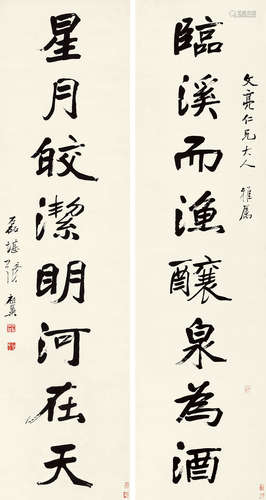 文亮仁兄大人 雅属
臨溪而漁釀泉為酒
星月皎潔明河在天